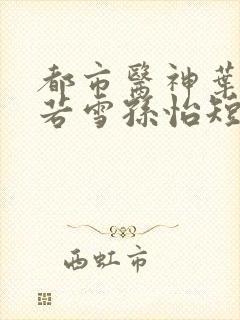 都市醫神葉
若雪孫怡短
西虹市